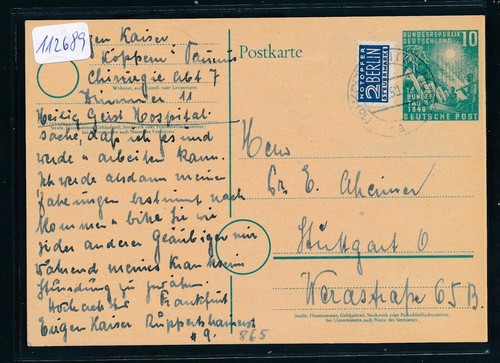 112689
Eugen Kaiser
Koppern Taunus
Chirurgie Abt 7
Wohnort, auch Zustell- oder Leitpostamt
Zimmer 11
Heilig Geist Hospital
Straße, Hausnummer, Gebäudeteil, Stockwerk
Postkarte
NOTOPFER
2 BERLIN
STEUERMARKE
BUNDESREPUBLIK
DEUTSCHLAND
10
BUNDES
TAG
1949
DEUTSCHE POST
sache, daß ich es und
werde arbeiten kann.
Ich werde alsdann meine
Zahlungen bestimmt nach
kommen bitte Sie wie
jeder anderen Gläubiger mir
während meines Krankseins
Stundung zu gewähren.
Hochachtend Frankfurt
Eugen Kaiser Ruppertshainerstr
# 9.
865
Herrn
Dr. E. Aheimer
Stuttgart O
Werastraße 65 B.
Straße, Hausnummer, Gebäudeteil, Stockwerk oder Postschließfachnummer,
bei Untermietern auch Name des Vermieters